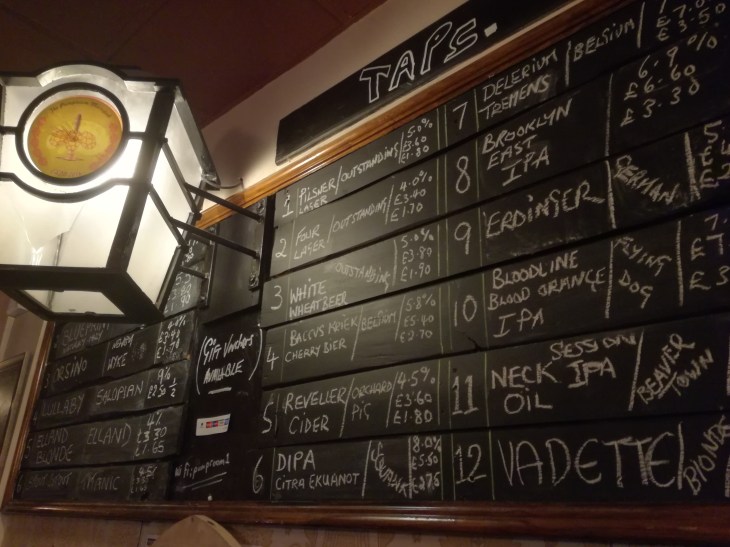 TAPS.
1 PILSNER LAGER / OUTSTANDING / 5.0% £3.60 £1.80
2 FOUR LAGER / OUTSTANDING / 4.0% £3.40 £1.70
3 WHITE WHEATBEER OUTSTANDING 5.0% £3.80 £1.90
4 BACCUS KRIEK / BELGIUM / 5.8% £5.40 £2.70
CHERRY BIER
5 REVELLER CIDER / ORCHARD PIG / 4.5% £3.60 £1.80
6 DIPA 8.0% £5.50
CITRA EKUANOT
7 DELERIUM TREMENS / BELGIUM / 7.0 £3.50
8 BROOKLYN EAST IPA 6.9% £6.60 £3.30
9 ERDINGER / GERMAN
10 BLOODLINE BLOOD ORANGE IPA / FLYING DOG
11 NECK OIL SESSION IPA / BEAVER TOWN
12 VADETTE / BLONDE
GIFT Vouchers AVAILABLE
ORSINO
LULLABY SALOPIAN
ELLAND BLONDE ELLAND 4% £3.30 £1.65
STOUT